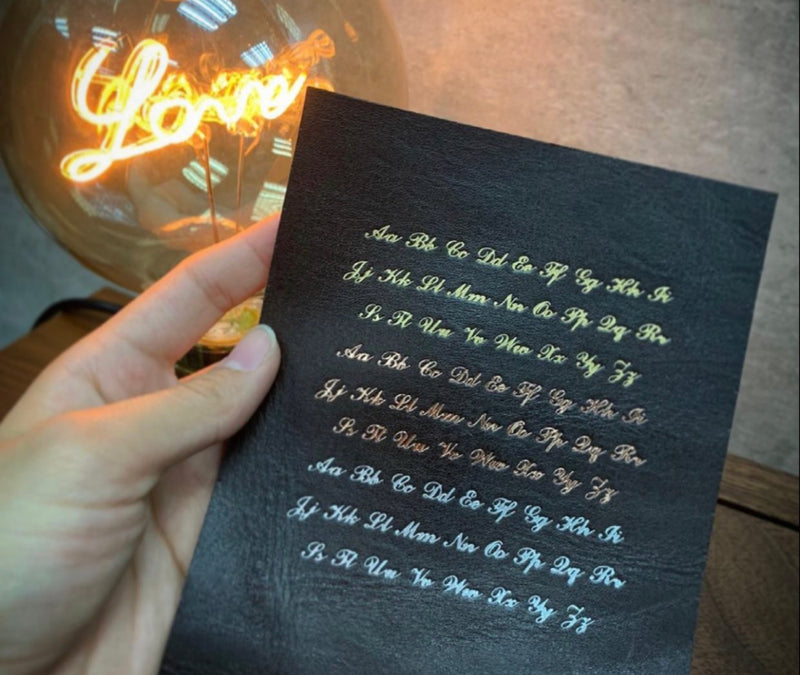 Love
Aa Bb Cc Dd Ee Ff Gg Hh Ii
Jj Kk Ll Mm Nn Oo Pp Qq Rr
Ss Tt Uu Vv Ww Xx Yy Zz
Aa Bb Cc Dd Ee Ff Gg Hh Ii
Jj Kk Ll Mm Nn Oo Pp Qq Rr
Ss Tt Uu Vv Ww Xx Yy Zz
Aa Bb Cc Dd Ee Ff Gg Hh Ii
Jj Kk Ll Mm Nn Oo Pp Qq Rr
Ss Tt Uu Vv Ww Xx Yy Zz